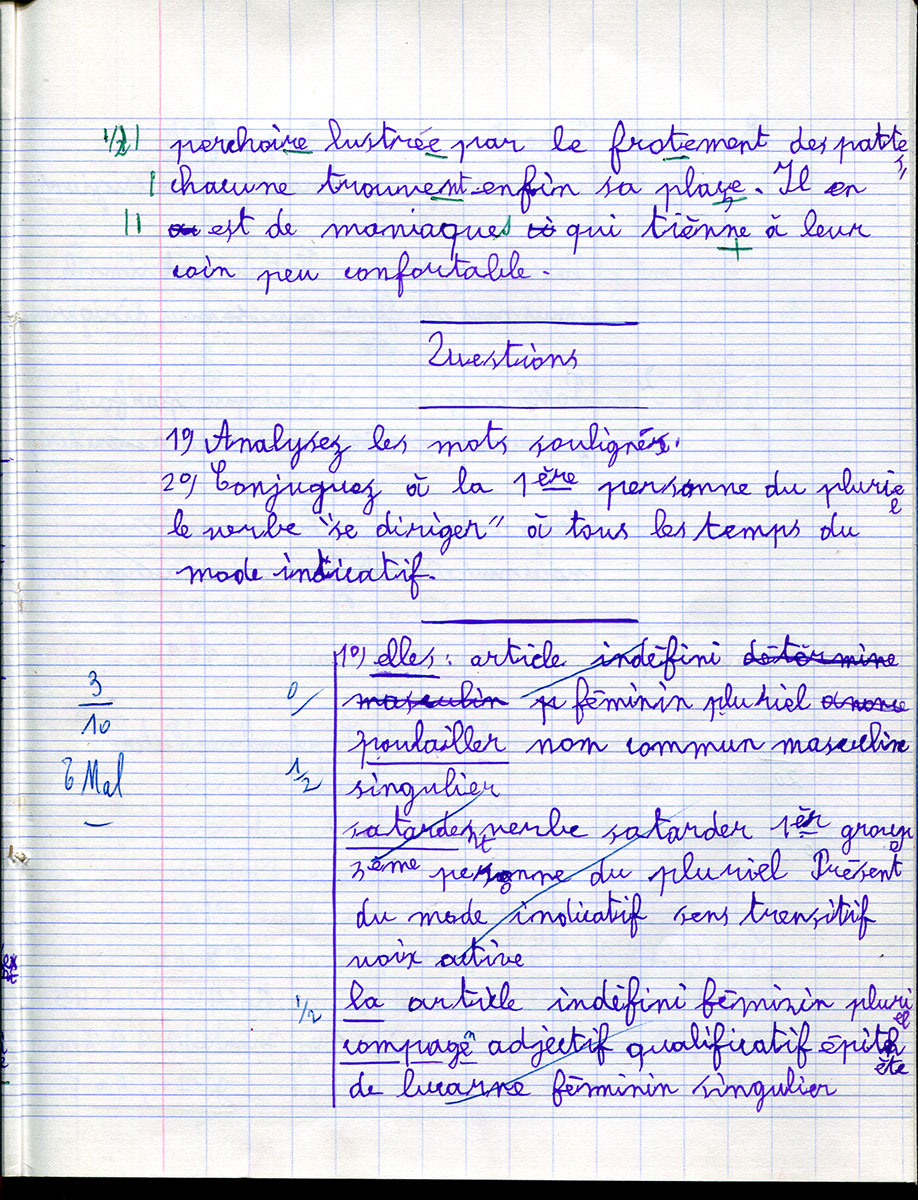 1/2| perchoire lustrée par le frotement des patte s,
| chacune trouvent enfin sa plaçe. Il en
|| est de maniaques qui tiènne à leur
coin peu confortable.
Questions
1°) Analysez les mots soulignés.
2°) Conjuguez à la 1ère personne du plurie l
le verbe "se diriger" à tous les temps du
mode indicatif.
1°) elles: article indéfini détermine
3/10
0 masculin p féminin pluriel
poulailler nom commun masculin
T Mal
1/2 singulier
satardent verbe satarder 1èr groupe
3ème personne du pluriel Présent
du mode indicatif sens transitif
voix active
1/2 la article indéfini féminin pluri el
compagn adjectif qualificatif épith ète
de lucarne féminin singulier